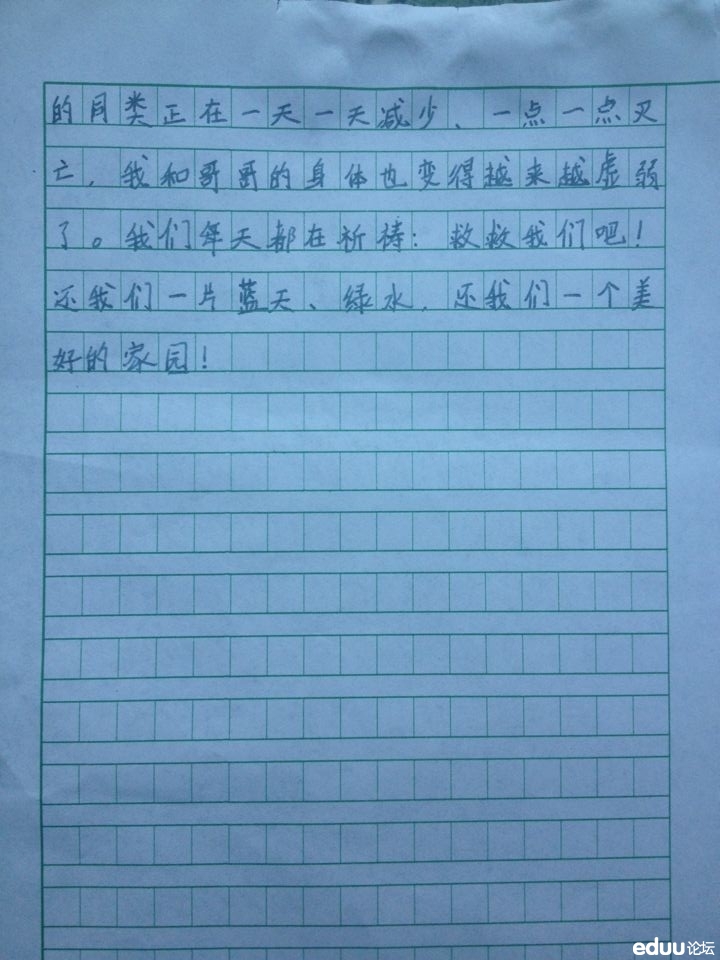 的同类正在一天一天减少、一点一点灭
亡，我和哥哥的身体也变得越来越虚弱
了。我们每天都在祈祷：救救我们吧！
还我们一片蓝天、绿水，还我们一个美
好的家园！
eduu论坛